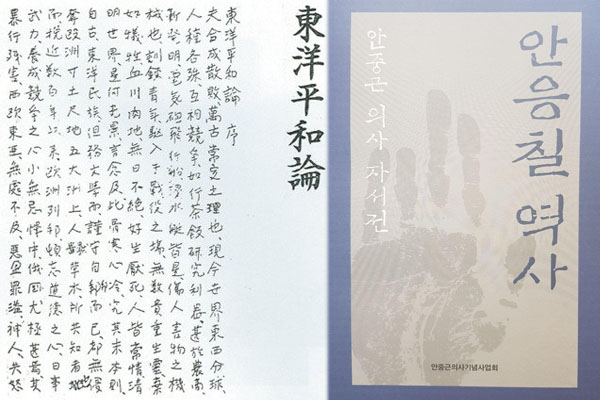 東洋平和論
東洋平和論 序
夫合成散敗,萬古常定之理也,現今世界東西分球,
人種各殊,互相競爭,如行茶飯,研究利器,甚於農商,
新發明,電氣砲,飛行船,浸水艇,皆是傷人害物之機
械也,訓鍊青年,驅入于戰役之場,無數貴重生靈,棄
如犧牲,血川肉地,無日不絶,好生厭死,人皆常情,清
明世界,是何光景,言念及此,骨寒心冷,究其末本,則
自古,東洋民族,但務文學而謹守自邦而已,都無侵
奪歐洲寸土尺地,五大洲上,人獸草木,所共知者也
而挽近數百年以來,歐洲列邦,頓忘道德之心,日事
武力,養成競爭之心,小無忌憚,中俄國尤極甚焉,其
暴行殘害,西歐東亞,無處不及,惡盈罪溢,神人共怒
안응칠 역사
안중근 의사 자서전
안중근의사기념사업회